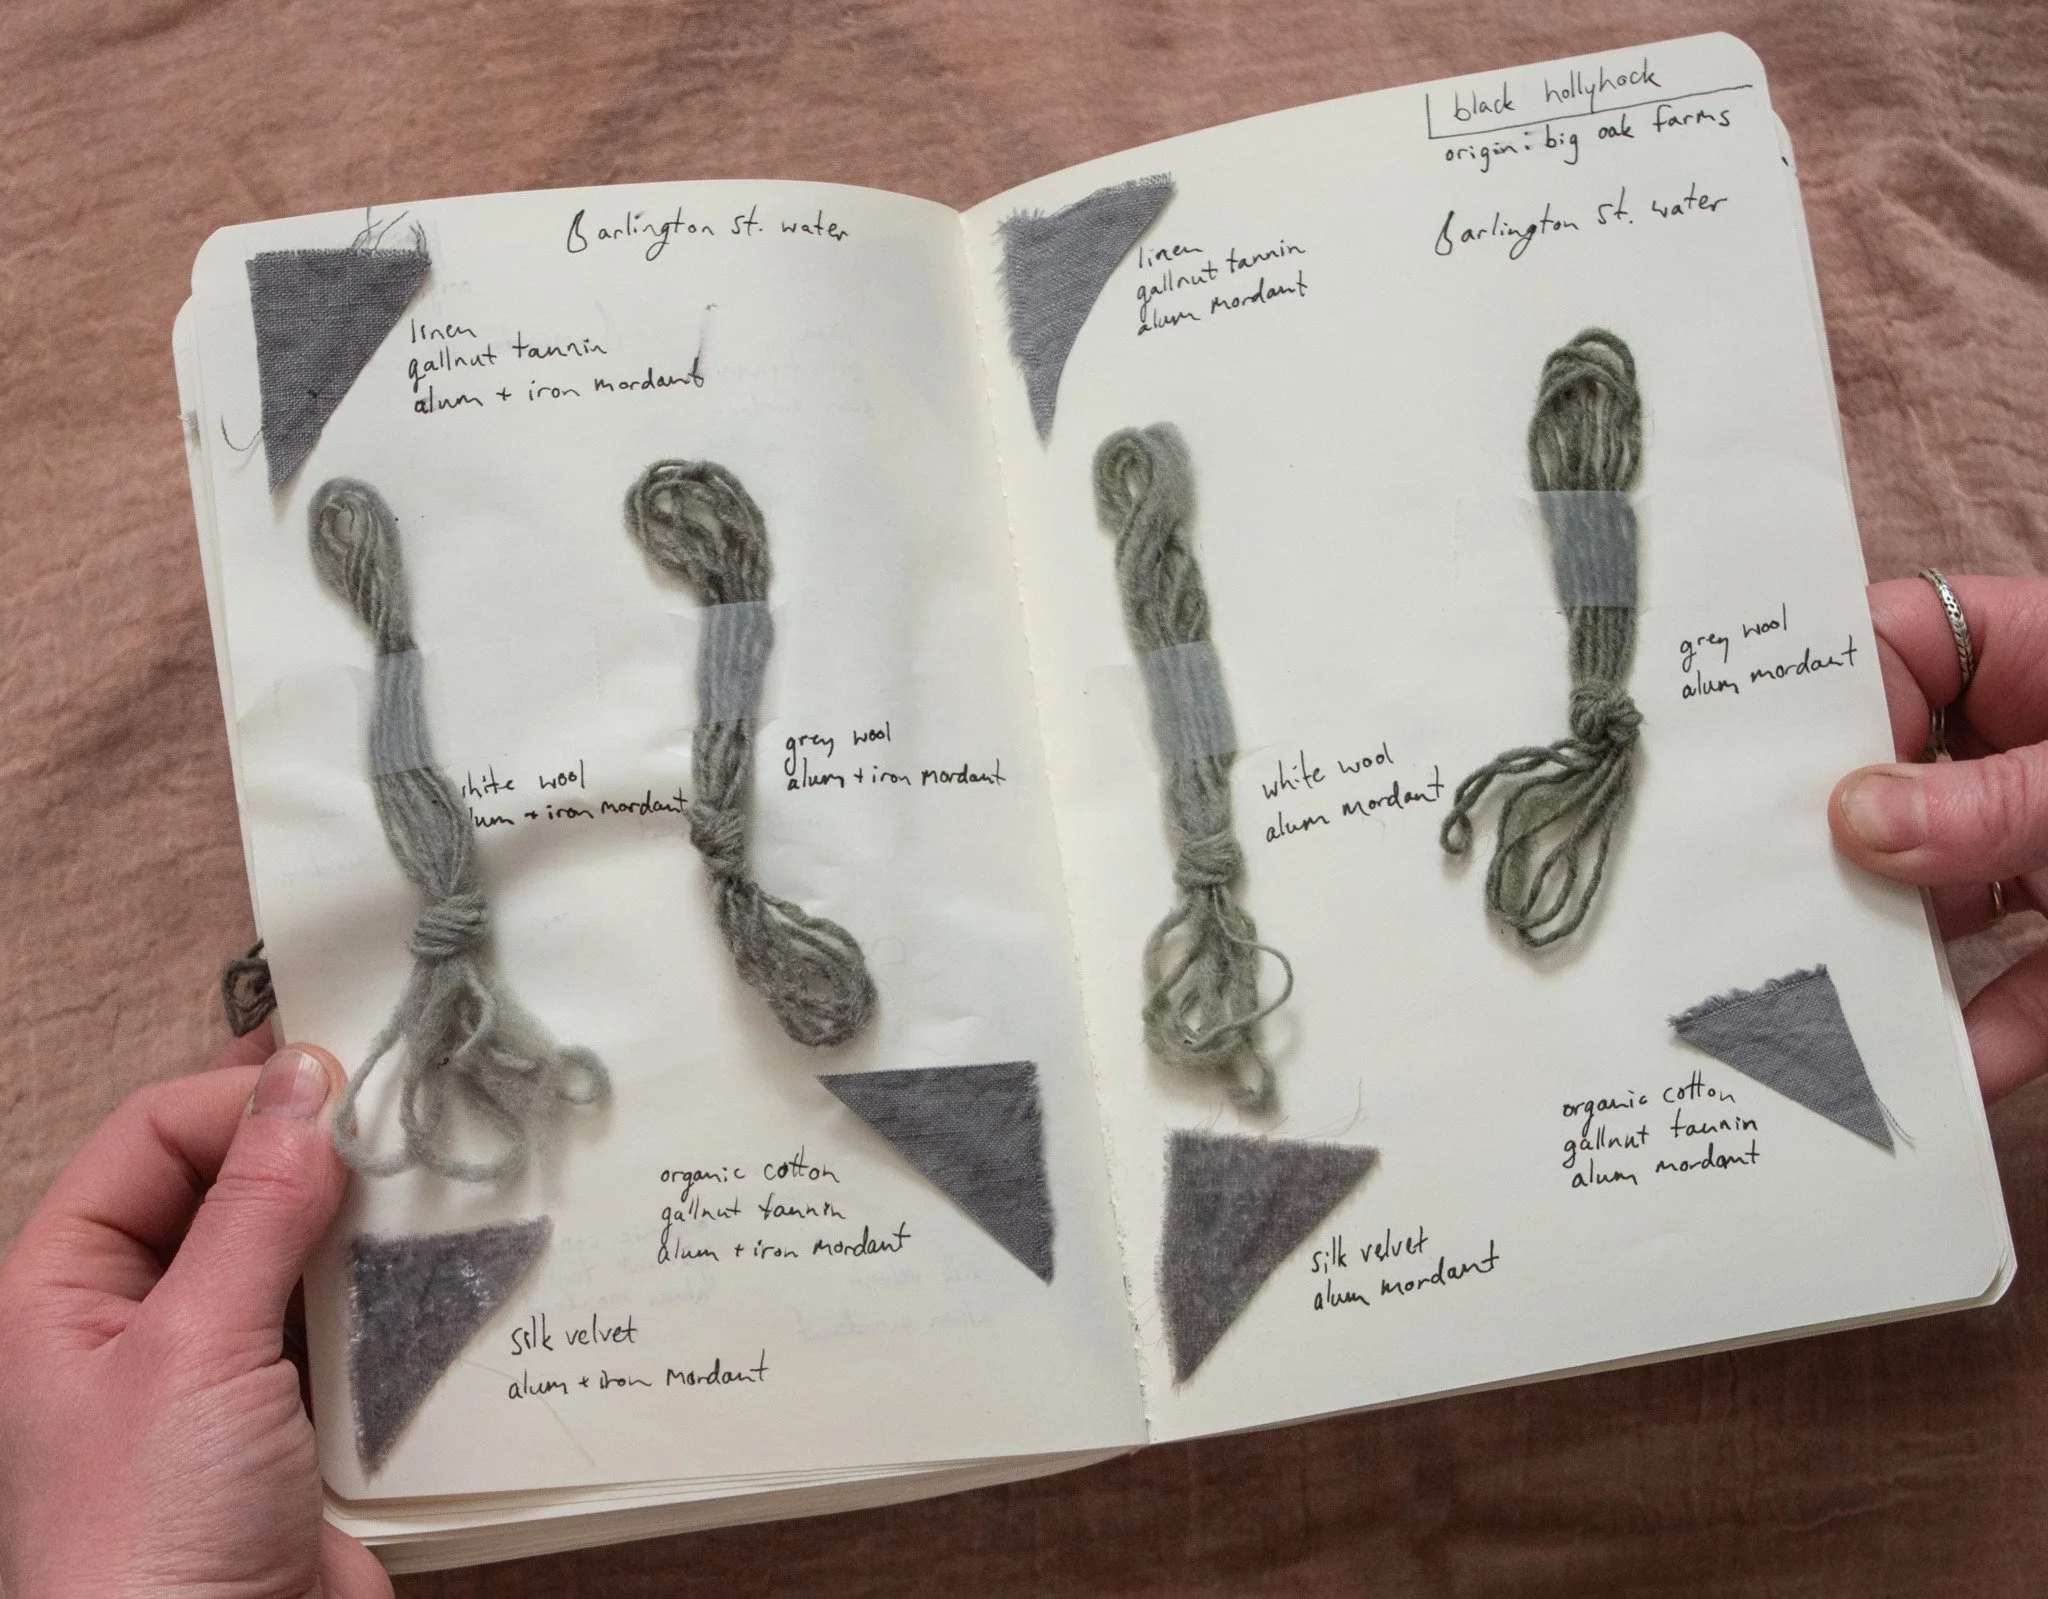 Barlington st. water
linen
gallnut tannin
alum + iron mordant
grey wool
alum + iron mordant
white wool
alum + iron mordant
organic cotton
gallnut tannin
alum + iron mordant
silk velvet
alum + iron mordant
black hollyhock
origin: big oak farms
Barlington st. water
linen
gallnut tannin
alum mordant
grey wool
alum mordant
white wool
alum mordant
organic cotton
gallnut tannin
alum mordant
silk velvet
alum mordant